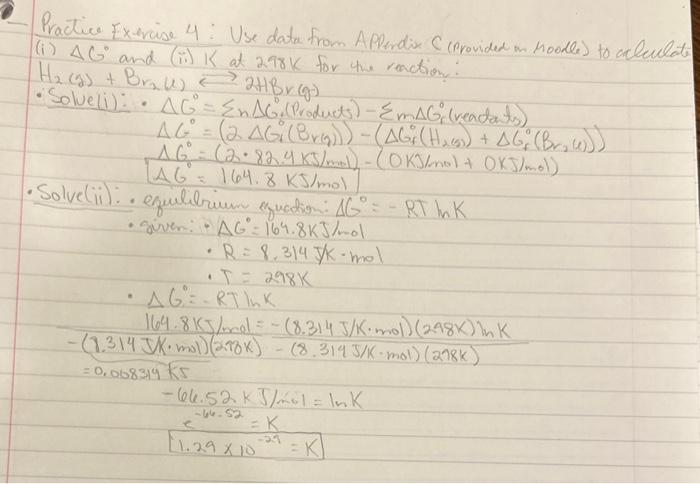 Practice Exercise 4: Use data from Appendix C (provided on Moodle) to calculate
(i) ΔG° and (ii) K at 298K for the reaction:
H₂(g) + Br₂(l) ⇄ 2HBr(g)
• Solve(i): • ΔG° = ΣnΔG°f(Products) - ΣmΔG°f(reactants)
ΔG° = (2 ΔG°f(Br(g))) - (ΔG°f(H₂(g)) + ΔG°f(Br₂(l)))
ΔG° = (2 • 82.4 KJ/mol) - (0 KJ/mol + 0 KJ/mol)
ΔG° = 164.8 KJ/mol
• Solve(ii): • equilibrium equation: ΔG° = - RT lnK
• given: • ΔG° = 164.8KJ/mol
• R = 8.314 J/K·mol
• T = 298K
• ΔG° = -RT lnK
164.8KJ/mol = -(8.314 J/K·mol)(298K) lnK
-(8.314 J/K·mol)(298K) -(8.314 J/K·mol)(298K)
= 0.008314 KJ
-66.52 KJ/mol = lnK
e^-66.52 = K
1.29 x 10^-29 = K